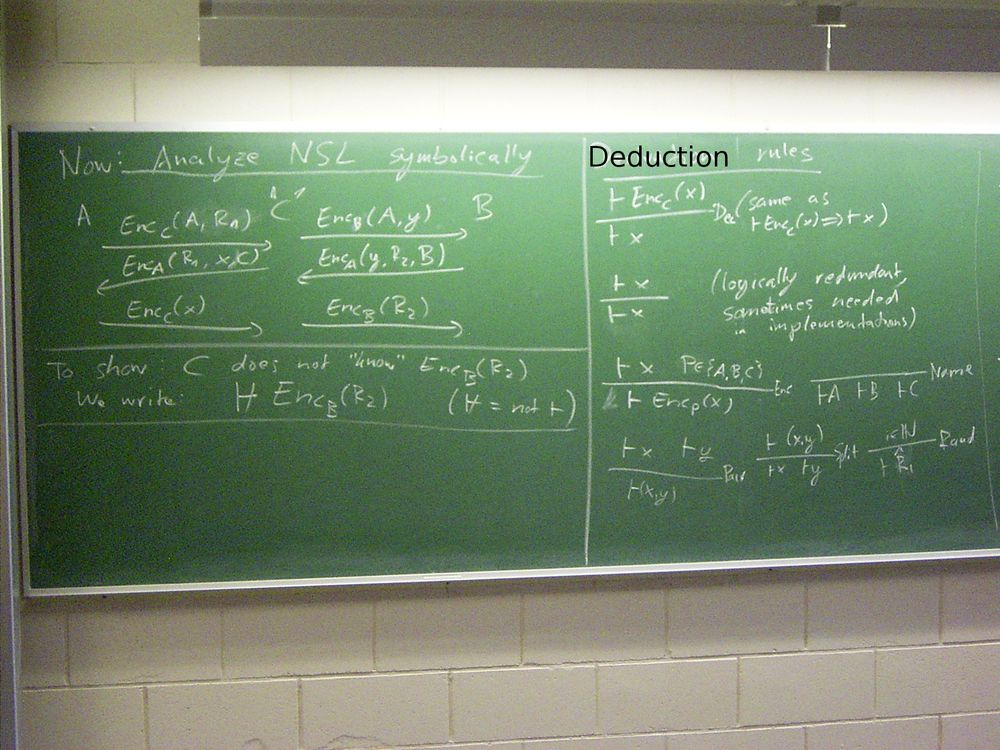 Now: Analyze NSL symbolically
A "C" B
Enc_C(A, R_1) Enc_B(A, y)
Enc_A(R_1, x, C) Enc_A(y, R_2, B)
Enc_C(x) Enc_B(R_2)
To show: C does not "know" Enc_B(R_2)
We write: ⊬ Enc_B(R_2) (⊬ = not ⊢)
Deduction rules
⊢ Enc_C(x)
Dec (same as
⊢ Enc_C(x) ⇒ ⊢ x)
⊢ x
⊢ x
⊢ x
(logically redundant,
sometimes needed
in implementations)
⊢ x P∈{A,B,C}
Enc
⊢ Enc_P(x)
Name
⊢A ⊢B ⊢C
⊢ x ⊢ y
Pair
⊢(x,y)
⊢ (x,y)
Split
⊢x ⊢y
i∈ℕ
Rand
⊢ R̂_i